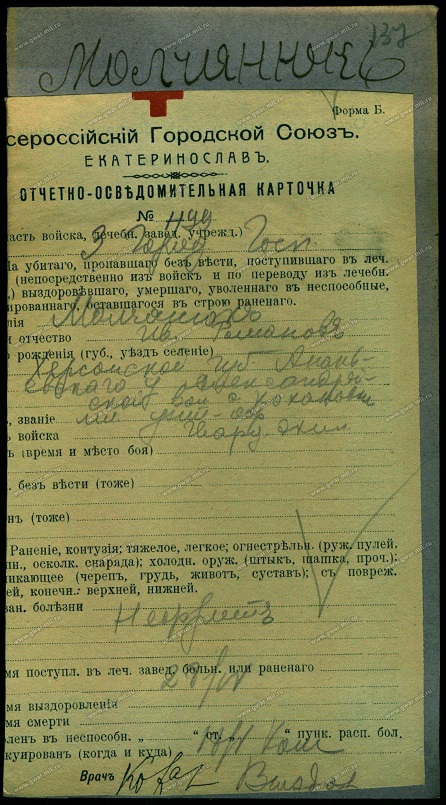 137
Форма Б.
сероссійскій Городской Союзъ.
ЕКАТЕРИНОСЛАВЪ.
ОТЧЕТНО-ОСВѢДОМИТЕЛЬНАЯ КАРТОЧКА
№ 1199
часть войска, лечебн. завед. учрежд.) 3 Город Госп
На убитаго, пропавшаго безъ вѣсти, поступившаго въ леч.
(непосредственно изъ войскъ и по переводу изъ лечебн.
.) выздоровѣвшаго, умершаго, уволеннаго въ неспособные,
ированнаго, оставшагося въ строю раненаго.
лія
и отчество Ив. Романовъ
о рожденія (губ., уѣздъ селеніе)
Херсонской губ Анань-
евскаго у Александрой-
ской вол с Кохановки
, званіе мл унт-оф
ь войска
ь (время и мѣсто боя)
. безъ вѣсти (тоже)
нъ (тоже)
Раненіе, контузія; тяжелое, легкое; огнестрѣльн. (руж. пулей.
пн., осколк. снаряда); холодн. оруж. (штыкъ, шашка, проч.);
никающее (черепъ, грудь, животъ, суставъ); съ повреж.
ей, конечн.: верхней, нижней.
ван. болѣзни Нефритъ
емя поступл. въ леч. завед. больн. или раненаго
мя выздоровленія
мя смерти
оленъ въ неспособн. „ “ ст. „ “ пунк. расп. бол.
куированъ (когда и куда)
Врачъ
www.gwar.mil.ru